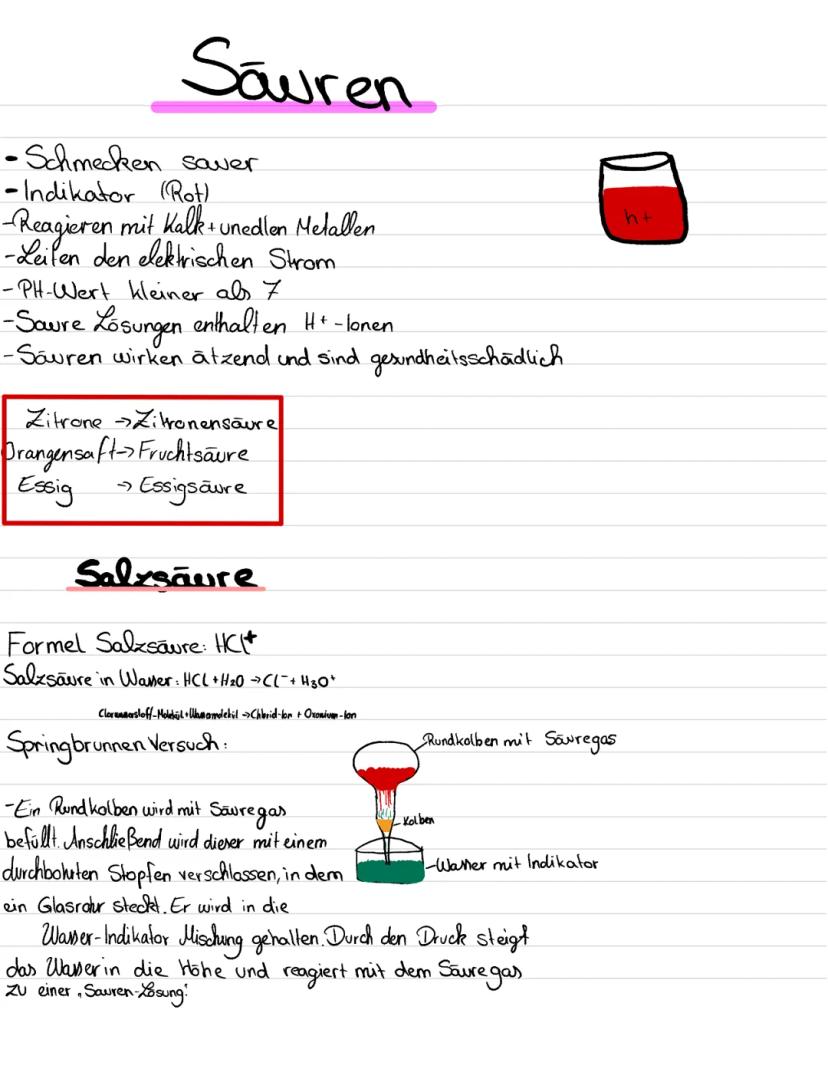 Säuren
- Schmecken sauer
- Indikator (Rot)
h+
-Reagieren mit Kalk + unedlen Metallen
-Leiten den elektrischen Strom
- PH-Wert kleiner als 7
-Saure Lösungen enthalten H+ -Ionen
-Säuren wirken ätzend und sind gesundheitsschädlich
Zitrone -> Zitronensäure
Orangensaft -> Fruchtsäure
Essig -> Essigsäure
Salzsäure
Formel Salzsäure: HCl+
Salzsäure in Wasser: HCL + H2O -> CL⁻ + H3O⁺
-> Chlorid-Ion + Oxonium-Ion
Springbrunnen Versuch:
Rundkolben mit Säuregas
Kolben
Wasser mit Indikator
-Ein Rundkolben wird mit Säuregas
befüllt. Anschließend wird dieser mit einem
durchbohrten Stopfen verschlossen, in dem
ein Glasrohr steckt. Er wird in die
Wasser-Indikator Mischung gehalten. Durch den Druck steigt
das Wasser in die Höhe und reagiert mit dem Säuregas
zu einer "Sauren-Lösung".